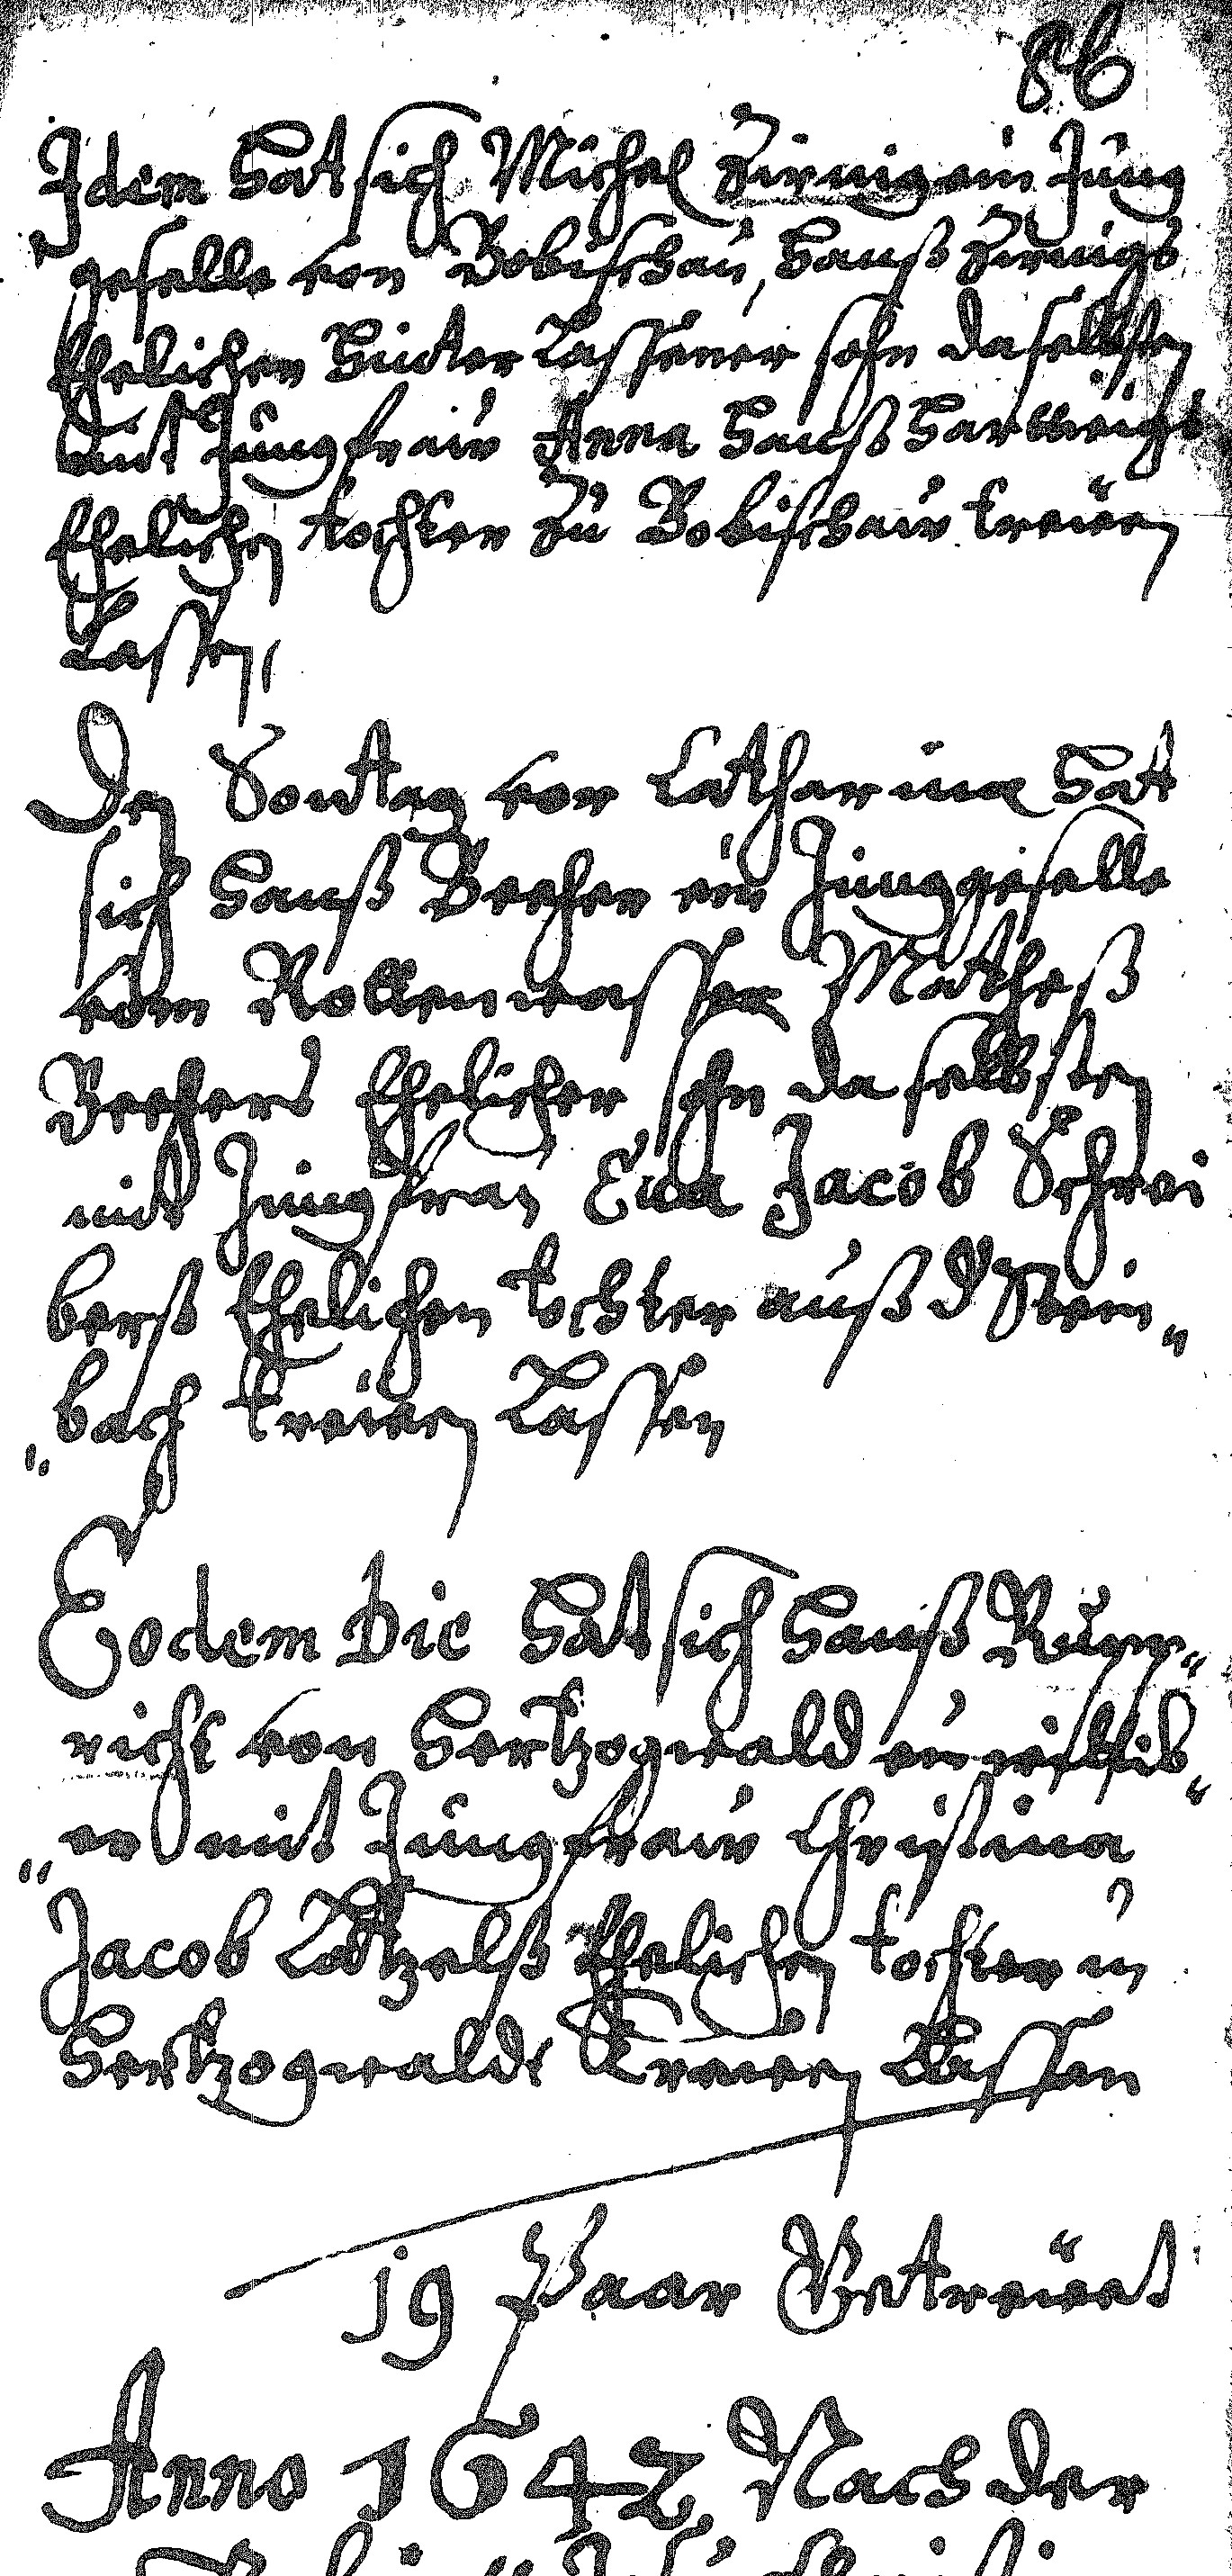 86
Idem Hat sich Michel Zirnig ein Jung
geselle von Bobischau, Hanß Zirnigs
Ehelichen hinter Lassener sohn daselbsten
mit Jungfraw Anna Hanß Hartwigs
Ehelichen tochter zu Bobischaw treüen
Lassen,
Den Sontag vor Catharina Hat
sich Hanß Becher ein Junggeselle
vom Rollenwasser Matheß
Bechers Ehelicher sohn daselbsten
mit Jungfrau Eua Jacob Schrei
berß Ehelichen tochter auß d Stein„
„bach treüen Lassen
Eodem Die Hat sich Hanß Rupp„
richt von Hertzogwald ein witib„
„er mit Jungfraw Christina
Jacob Lötzelß Ehelichen tochter in
Hertzogwalde Treuen Lassen
19 Paar Getreüet
Anno 1642 Nach der